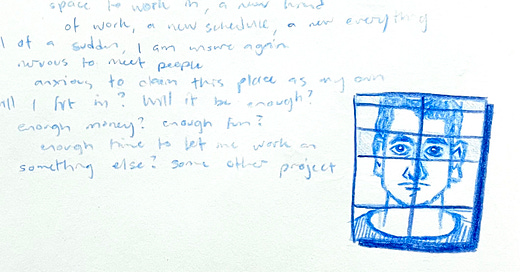 space to work in, a new kind
of work, a new schedule, a new everything
of a sudden, I am insure again
nervous to meet people
anxious to claim this place as my own
I fit in? Will it be enough?
enough money? enough fun?
enough time to let me work on
something else? some other project